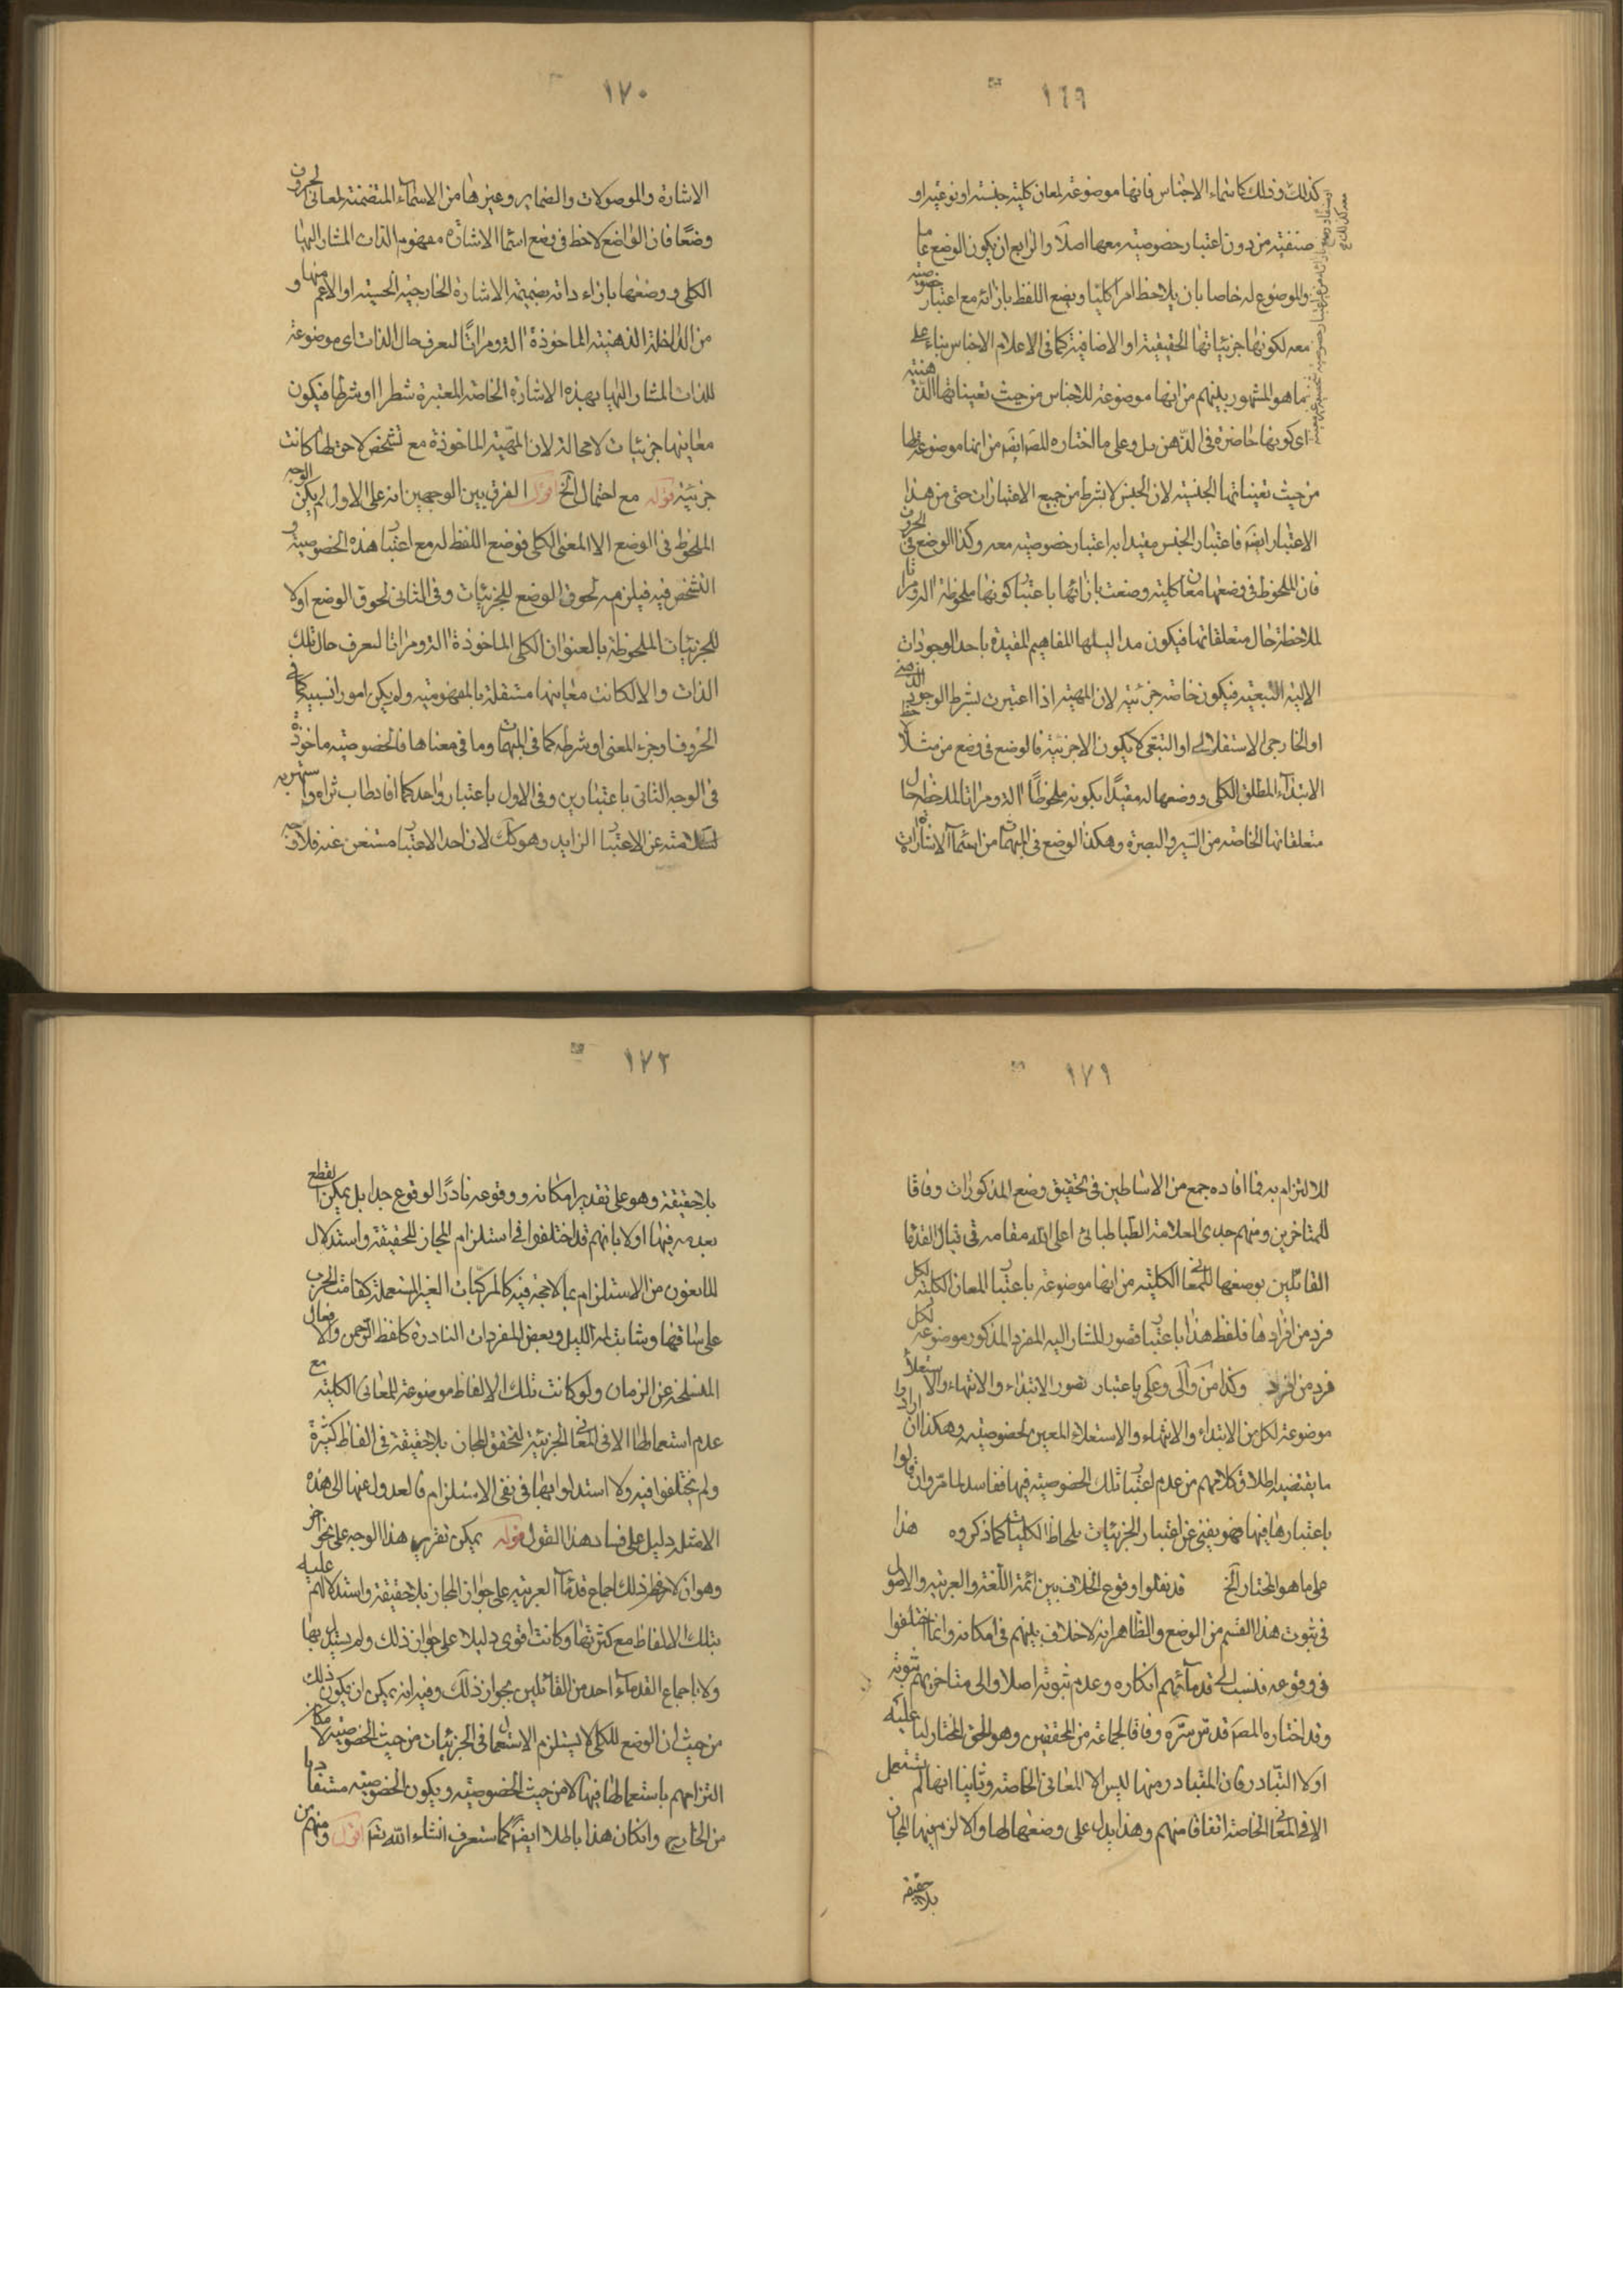 ١٦٩
كذلك وذلك كاسماء الاجناس فانها موضوعة لمعان كلية جنسية او نوعية او
صنفية من دون اعتبار خصوصية معها اصلا والرابع ان يكون الوضع عاما
والموضوع له خاصا بان يلاحظ امرا كليا ويضع اللفظ بازائه مع اعتبار خصوصية
معه لكونها جزئياتها الحقيقية او الاضافية كما فى الاعلام الاجناس بناء على
ما هو المشهور بينهم من انها موضوعة للاجناس من حيث تعيناتها الذهنية
اى كونها حاضرة فى الذهن بل وعلى ما اختاره المصَ ايضَ من انها موضوعة لها
من حيث تعيناتها الجنسية لان الجنس لا بشرط من جميع الاعتبارات حتى من هذا
الاعتبار ايضَ فاعتبار الجنس مقيدا به اعتبار خصوصية معه وكذا الوضع فى الحروف
فان الملحوظ فى وضعها معان كلية وضعت بازائها باعتبار كونها ملحوظة الة ومراتا
لملاحظة حال متعلقاتها فيكون مداليلها المفاهيم المقيدة باحد الوجودات
الالية التبعية فيكون خاصة جزئية لان المهية اذا اعتبرت بشرط الوجود الذهنى
او الخارجى الاستقلالى او التبعى لا يكون الا جزئية فالوضع فى وضع من مثلا لاحظ
الابتداء المطلق الكلى ووضعها له مقيدًا بكونه ملحوظًا الة ومراتا لملاحظة حال
متعلقاتها الخاصة من السير والبصرة وهكذا الوضع فى المبهمات من اسماء الاشارات
١٧٠
الاشارة والموصولات والضماير وغيرها من الاسماء المتضمنة لمعانى الحروف
وضعًا فان الواضع لاحظ فى وضع اسماء الاشارة مفهوم الذات المشار اليها
الكلى ووضعها بازاء ذاته بضميمة الاشارة الخارجية الحسية او الاعم منها و
من الداخلة الذهنية الماخوذة الة ومراتًا لتعرف حال الذات اى موضوعة
للذات المشار اليها بهذه الاشارة الخاصة المعتبرة شطرا او شرطا فيكون
معاينها جزئيات لا محالة لان المهّية الماخوذة مع تشخص لاحق لها كانت
جزئية قوله مع احتمال الخ اقول الفرق بين الوجهين انه على الاول لم يكن الوجه
الملحوظ فى الوضع الا المعنى الكلى فوضع اللفظ له مع اعتبار هذه الخصوصية و
التشخص فيه فيلزمه لحوق الوضع للجزئيات وفى الثانى لحوق الوضع اولا
للجزئيات الملحوظة بالعنوان الكلى الماخوذة الة ومراتا لتعرف حال تلك
الذات والا لكانت معاينها مستقلة بالمفهومية ولم يكن امورا نسبية كما فى
الحروف او جزء المعنى او شرطه كما فى المبهمات وما فى معناها فالخصوصية ماخوذة
فى الوجه الثانى باعتبارين وفى الاول باعتبار واحد كما افاد طاب ثراه واستقربه
لسلامته عن الاعتبار الزايد وهو كك لان احد الاعتبار مستغن عنه فلا وجه
١٧١
للالتزام به فما افاده جمع من الاساطين فى تحقيق وضع المذكورات وفاقا
للمتاخرين ومنهم جدى العلامة الطباطبائى اعلى الله مقامه فى قبال القدما
القائلين بوضعها للمعانى الكلية من انها موضوعة باعتبار المعان الكلية لكل
فرد من افرادها فلفظ هذا باعتبار تصور المشار اليه المفرد المذكور موضوعة لكل
فرد من افرد وكذا من والى وعلى باعتبار تصور الابتداء والانتهاء والاستعلاء
موضوعة لكل من الابتداء والانتهاء والاستعلاء المعين بخصوصيته وهكذا ان ارادوا
ما يقتضيه اطلاق كلامهم من عدم اعتبار تلك الخصوصية فيها ففاسد لما مرّ وان قالوا
باعتبارها فيها فهو يغنى عن اعتبار الجزئيات بلحاظ الكليات كما ذكروه هذا
على ما هو المختار الخ قد نقلوا وقوع الخلاف بين ائمة اللغة والعربية والاصول
فى ثبوت هذا القسم من الوضع والظاهر انه لا خلاف بينهم فى امكانه وانما اختلفوا
فى وقوعه فنسب الى قدمائهم انكاره وعدم ثبوته اصلا والى متاخريهم ثبوته
وقد اختاره المصَ قدس سّره وفاقا لجماعة من المحققين وهو الحق المختار لنا عليه
اولا التبادر فان المتبادر منها ليس الا المعانى الخاصة وثانيا انها لم يستعمل
الا فى المعانى الخاصة اتفاقا منهم وهذا يدل على وضعها لها والا لزم فيها المجاز
بلا حقيقة
١٧٢
بلا حقيقة وهو على تقدير امكانه ووقوعه نادرًا لوقوع جدا بل يمكن القطع
بعدمه فيها اولا بانهم قد اختلفوا فى استلزام المجاز للحقيقة واستدلال
المانعون من الاستلزام بما لا حجة فيه كالمركبات الغير المستعملة كقامت الحرب
على ساقها وشابت لمة الليل وبعض المفردات النادرة كلفظ الرحمن والافعال
المنسلخة عن الزمان ولو كانت تلك الالفاظ موضوعة للمعانى الكلية مع
عدم استعمالها الا فى المعانى الجزئية لتحقق المجاز بلا حقيقة فى الفاظ كثيرة
ولم يختلفوا فيه ولا استدلوا بها فى نفى الاستلزام فالعدول عنها الى هذه
الامثلة دليل على فساد هذا القول قوله يمكن تقرير هذا الوجه على نحو اخر
وهو ان لازم ذلك اجماع قدماء العربية على جواز المجاز بلا حقيقة واستدلالهم عليه
بتلك الالفاظ مع كثرتها وكانت اقوى دليلا على جواز ذلك ولم يستدل بها
ولا باجماع القدماء احد من القائلين بجواز ذلك وفيه انه يمكن ان يكون ذلك
من حيث ان الوضع للكلى لا يستلزم الاستعمال فى الجزئيات من حيث الخصوصية لامكان
التزامهم باستعمالها فيها لا من حيث الخصوصية ويكون الخصوصية مستفادا
من الخارج وانكان هذا باطلا ايضًا كما ستعرف انشاء الله تعَ اقول ومنهم من